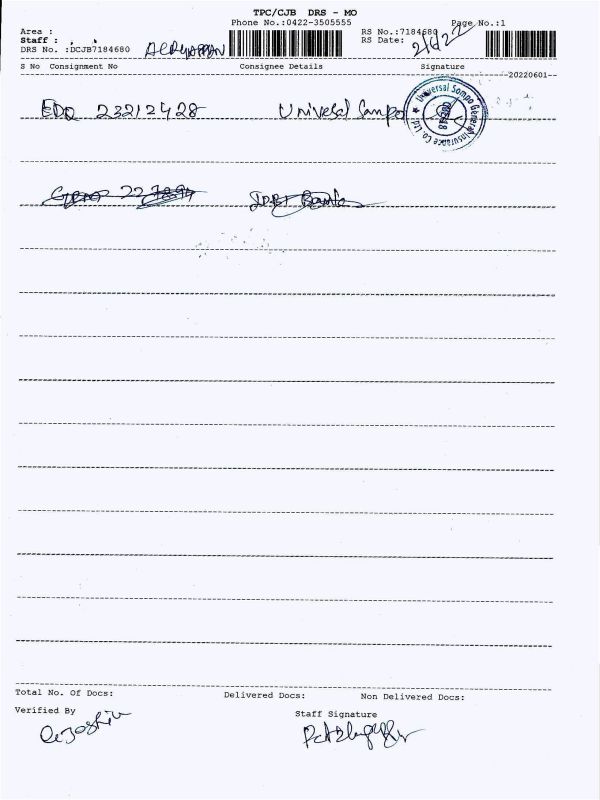 TPC/CJB DRS - MO
Phone No.:0422-3505555
Page No.:1
Area :
RS No.:7184680
Staff :
RS Date: 2/6/22
DRS No. :DCJB7184680
S No Consignment No Consignee Details Signature
--20220601--
EDQ 23212428 Univesal Sompo
Universal Sompo General Insurance Co. Ltd.
IDBI Bank
Total No. Of Docs: Delivered Docs: Non Delivered Docs:
Verified By
Staff Signature